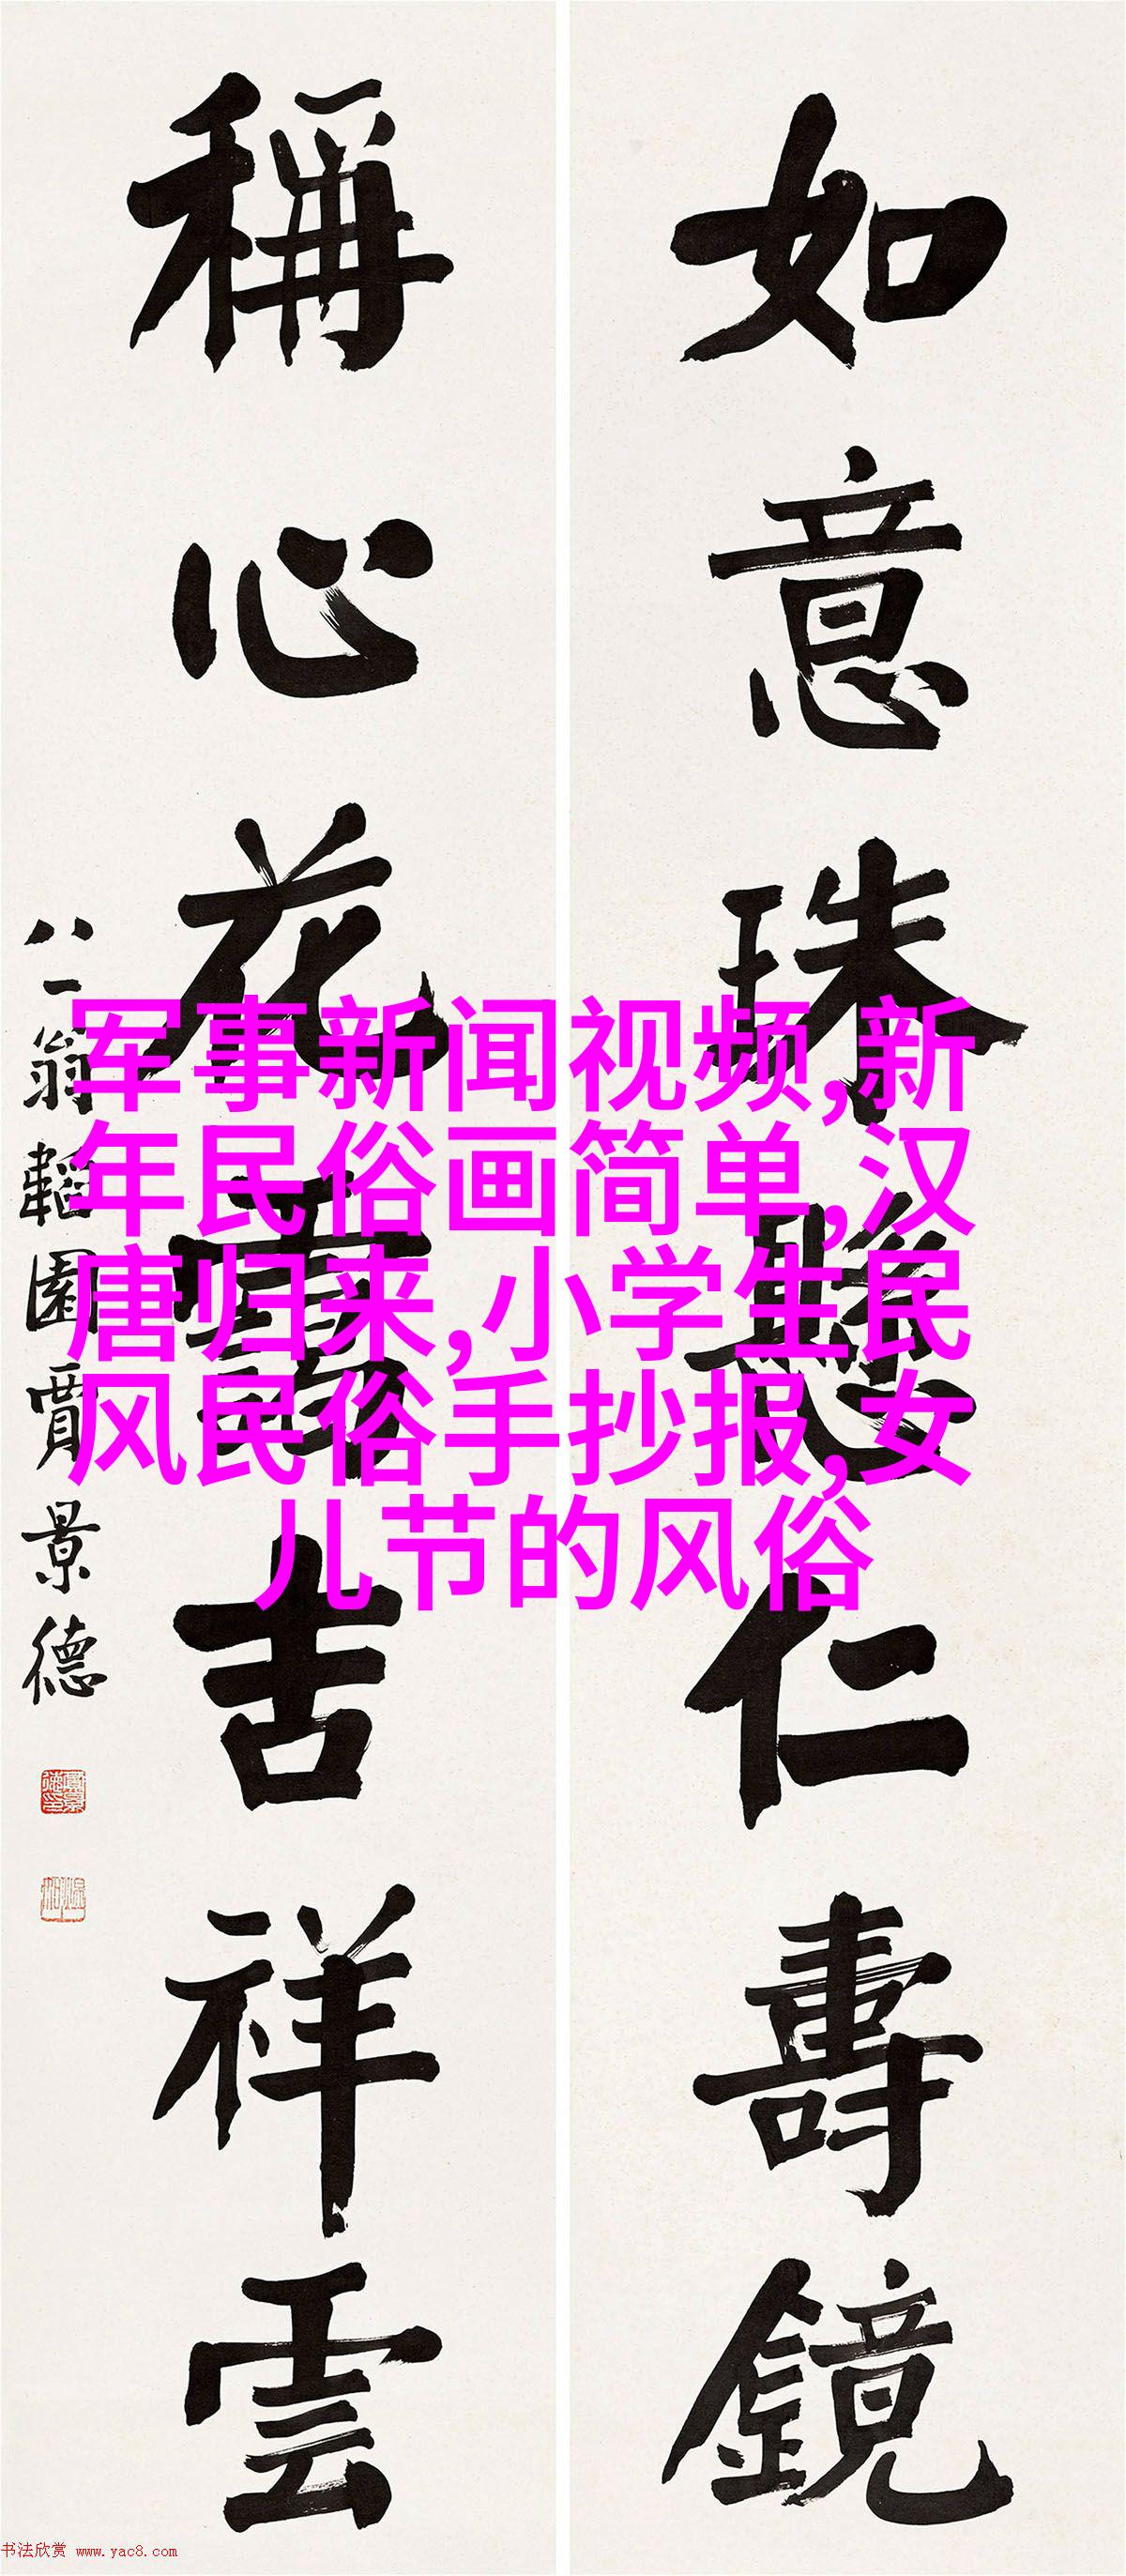 如意珠懸仁壽鏡
稱心花吉祥雲
八一翁韜園賈景德
军事新闻视频,新
年民俗画简单,汉
唐归来,小学生民
风民俗手抄报,女
儿节的风俗
书法欣赏 www.yac8.com